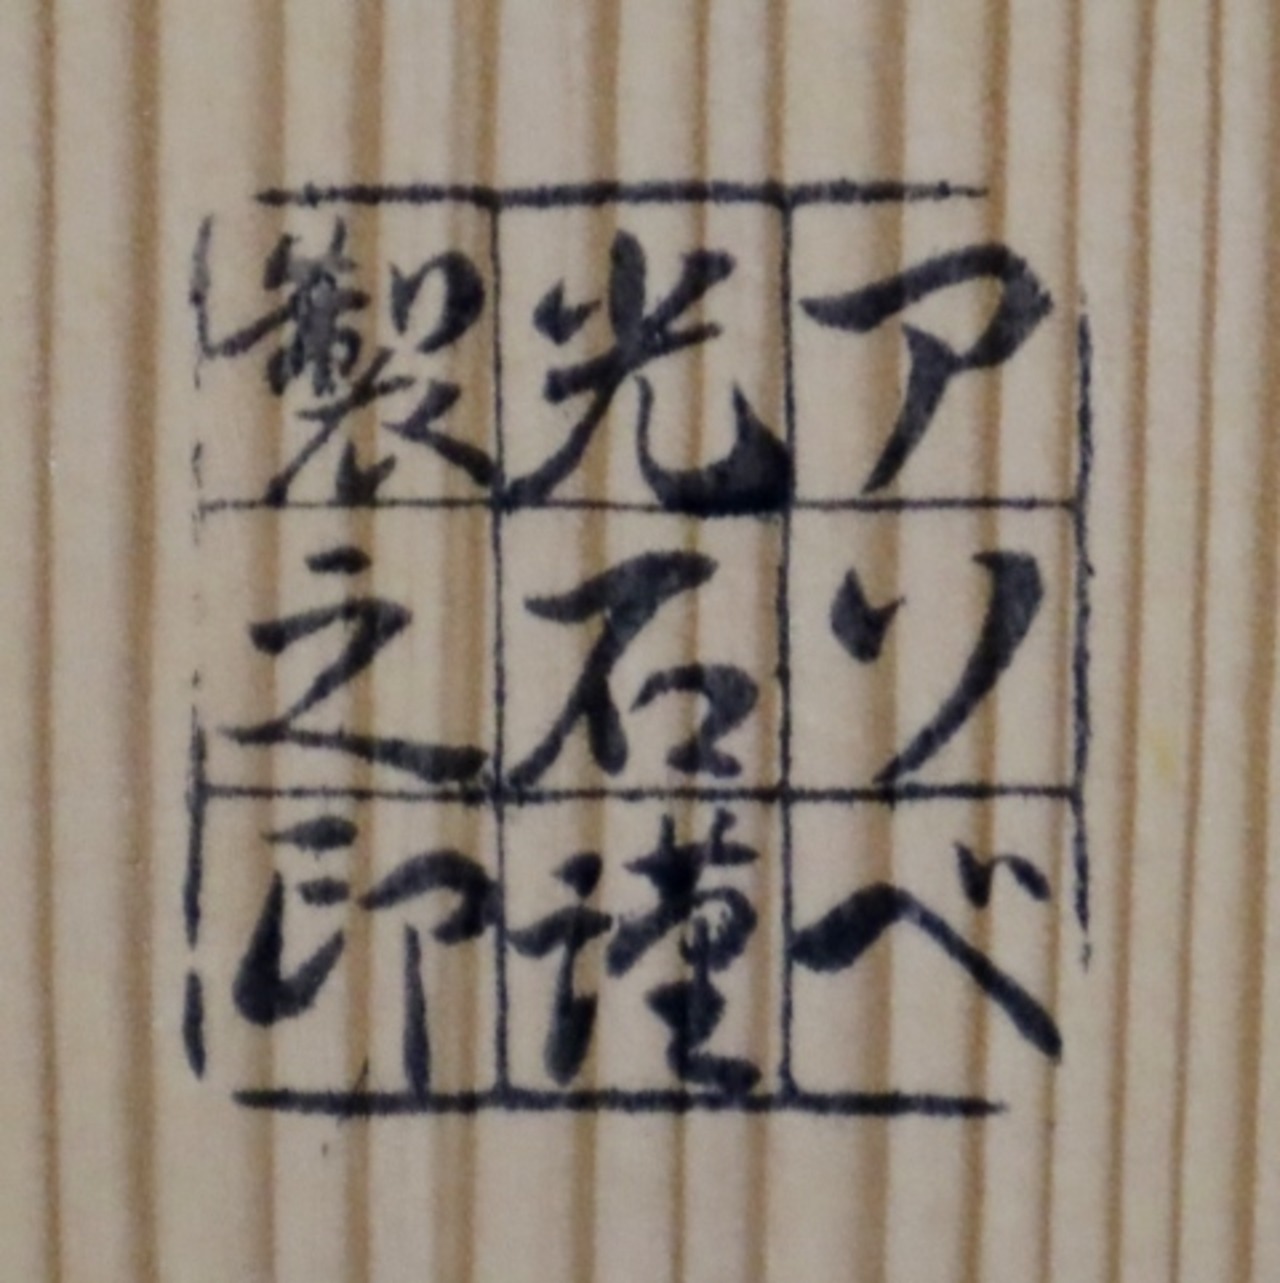 アリベ
光石謹
製之印